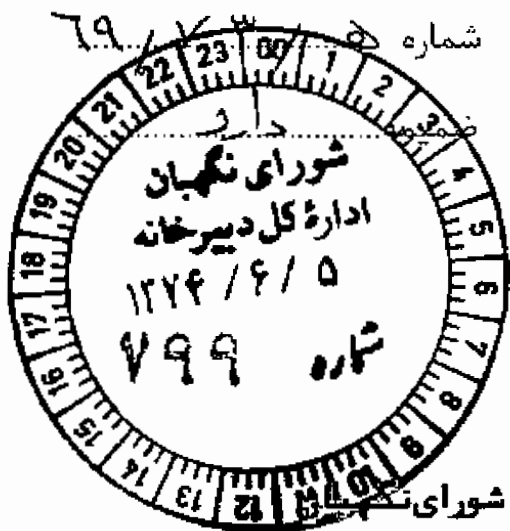 شماره
ضمیمه دارد
00 1 2 3 4 5 6 7 8 9 10 11 12 13 14 15 16 17 18 19 20 21 22 23
شورای نگهبان
ادارهٔ کل دبیرخانه
۱۳۷۴ / ۶ / ۵
شماره ۷۹۹
شورای نگهبان